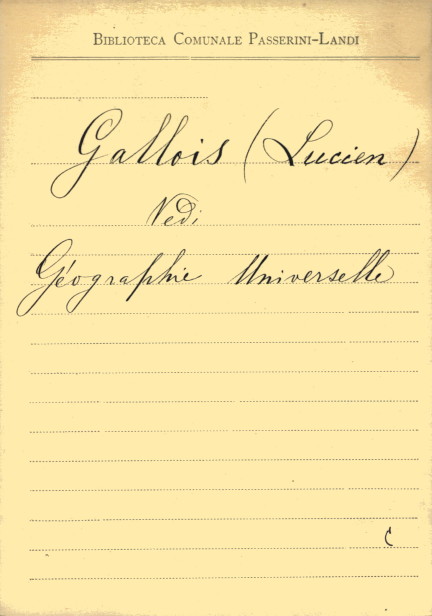 BIBLIOTECA COMUNALE PASSERINI-LANDI
Gallois (Lucien)
Vedi
Géographie Universelle
C